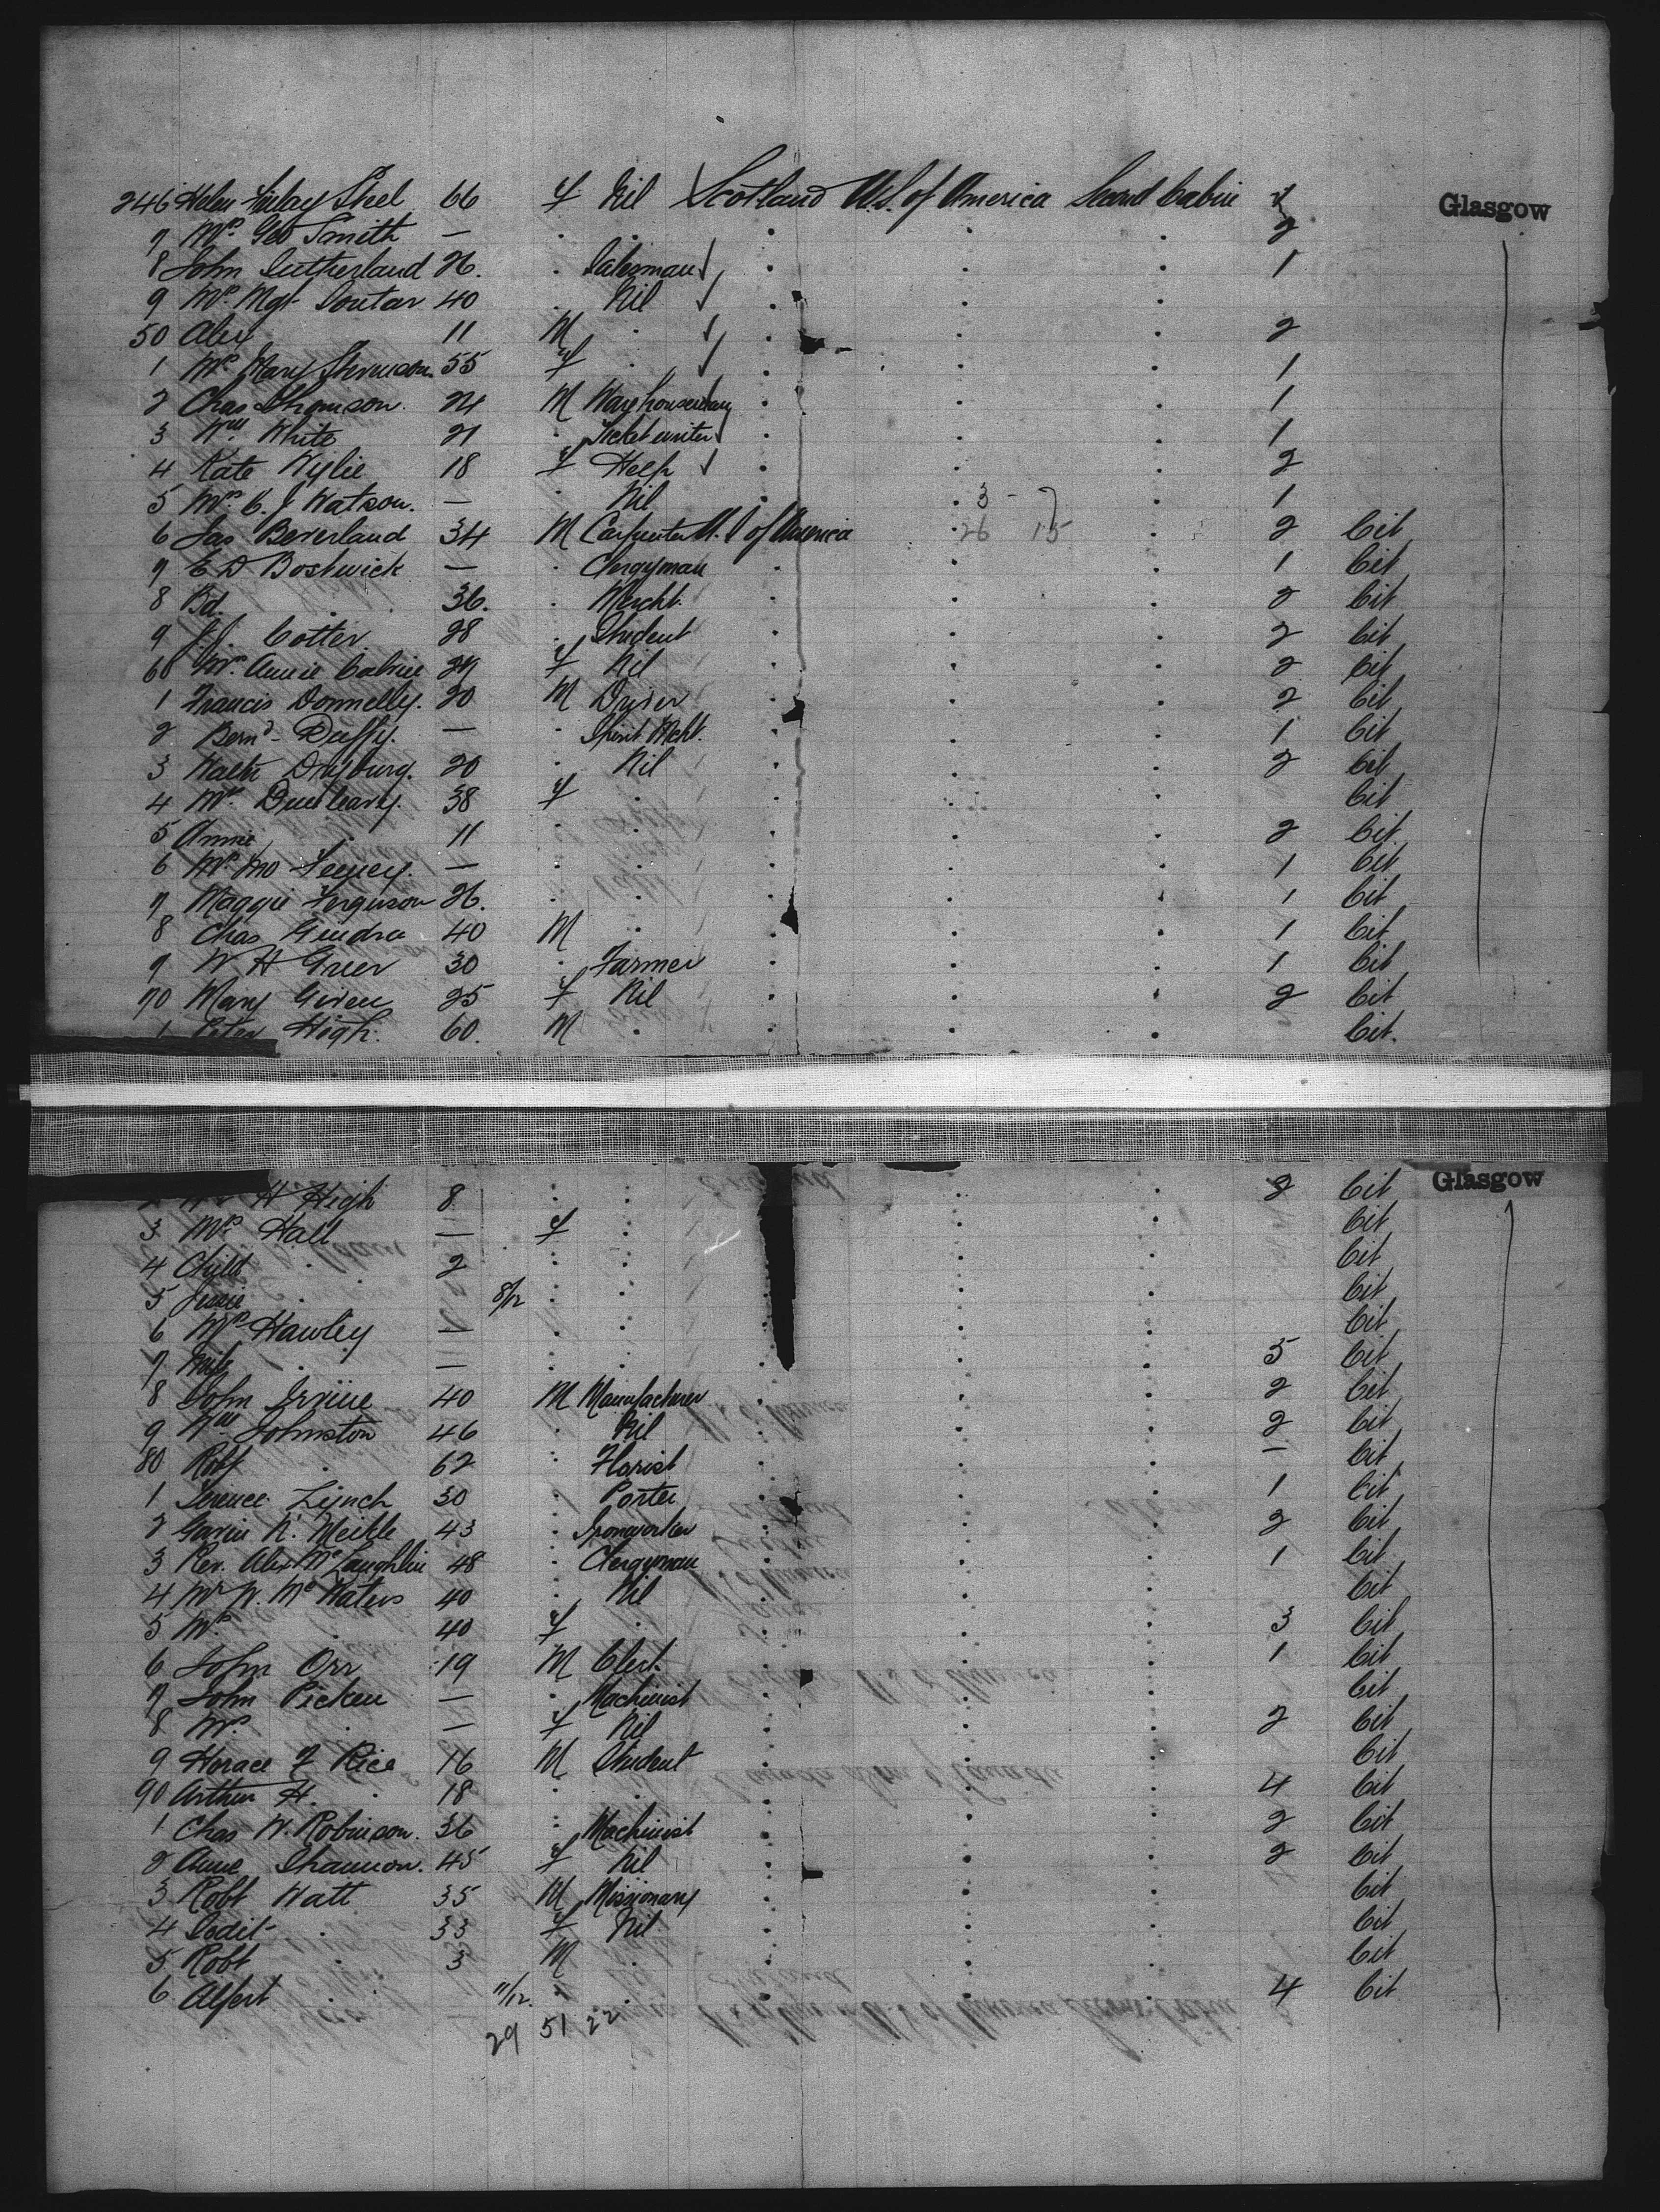 246 Helen Finlay Steel 66 f Nil Scotland U.S. of America Second Cabin Glasgow
7 Mrs Geo Smith — . . . . . 2
8 John Sutherland 26. . Salesman . . . 1
9 Mrs Mgt Soutar 40 . Nil . . .
50 Alex 11 M . . . . 2
1 Mrs Mary Stevenson. 55 f . . . . 1
2 Chas Thomson. 24 M Warehouseman . . . 1
3 Wm White 21 . Ticketwriter . . . 1
4 Kate Wylie 18 f Help . . . 2
5 Mrs C. J Watson. — . Nil . 3 - 7 . 1
6 Jas Beverland 34 M Carpenter U.S of America 26 15 2 Cit
7 E D Bostwick — . Clergyman . . . 1 Cit
8 Bd. . . 36. . Mercht. . . . 2 Cit
9 J.J. Cotter 28 . Student . . . 2 Cit
60 Mrs Annie 29 f Nil . . . 2 Cit
1 Francis Donnelly. 20 M Driver . . . 2 Cit
2 Bernd Duffy. — . Spirit Mcht. . . . 1 Cit
3 Walter Dryburg. 20 . Nil . . . 2 Cit
4 Mrs Dunleavy. 38 f . . . . Cit
5 Annie . 11 . . . . . 2 Cit
6 Mrs Mo — . . . . . 1 Cit
7 Maggie Ferguson 26. . . . . . 1 Cit
8 Chas 40 M . . . . 1 Cit
9 W H Greer 30 . Farmer . . . 1 Cit
70 Mary Given 25 f Nil . . . 2 Cit
1 Peter High. 60. M . . . . Cit.
H High 8 . . . . 2 Cit Glasgow
3 Mrs Hall — f . . . . Cit
4 Child . 2 . . . . . Cit
5 Jessie . 8/12 . . . . . Cit
6 Mrs Hawley — . . . . . Cit
7 . — . . . . . 5 Cit
8 John Irvine 40 M Manufacturer . . . 2 Cit
9 Wm Johnston 46 . Nil . . . 2 Cit
80 Robt . 62 . Florist . . . — Cit
1 Terence Lynch 30 . Porter . . . 1 Cit
2 Gavin K. Meikle 43 . Ironworker . . . 2 Cit
3 Rev. Alex McLaughlin 48 . Clergyman . . . 1 Cit
4 Mr W. McWaters 40 . Nil . . . Cit
5 Mrs . 40 f . . . . 3 Cit
6 John Orr 19 M Clerk. . . . 1 Cit
7 John Picken — . Machinist . . . Cit
8 Mrs . — f Nil . . . 2 Cit
9 Horace F Rice 16 M Student . . . Cit
90 Arthur H. . 18 . . . . . 4 Cit
1 Chas W. Robinson. 36 . Machinist . . . 2 Cit
2 Anne Shannon. 45 f Nil . . . 2 Cit
3 Robt Watt 35 M Missionary . . . Cit
4 . 33 f Nil . . . Cit
5 Robt . 3 M . . . . Cit
6 Albert . 11/12. . . . . 4 Cit
29 51 22